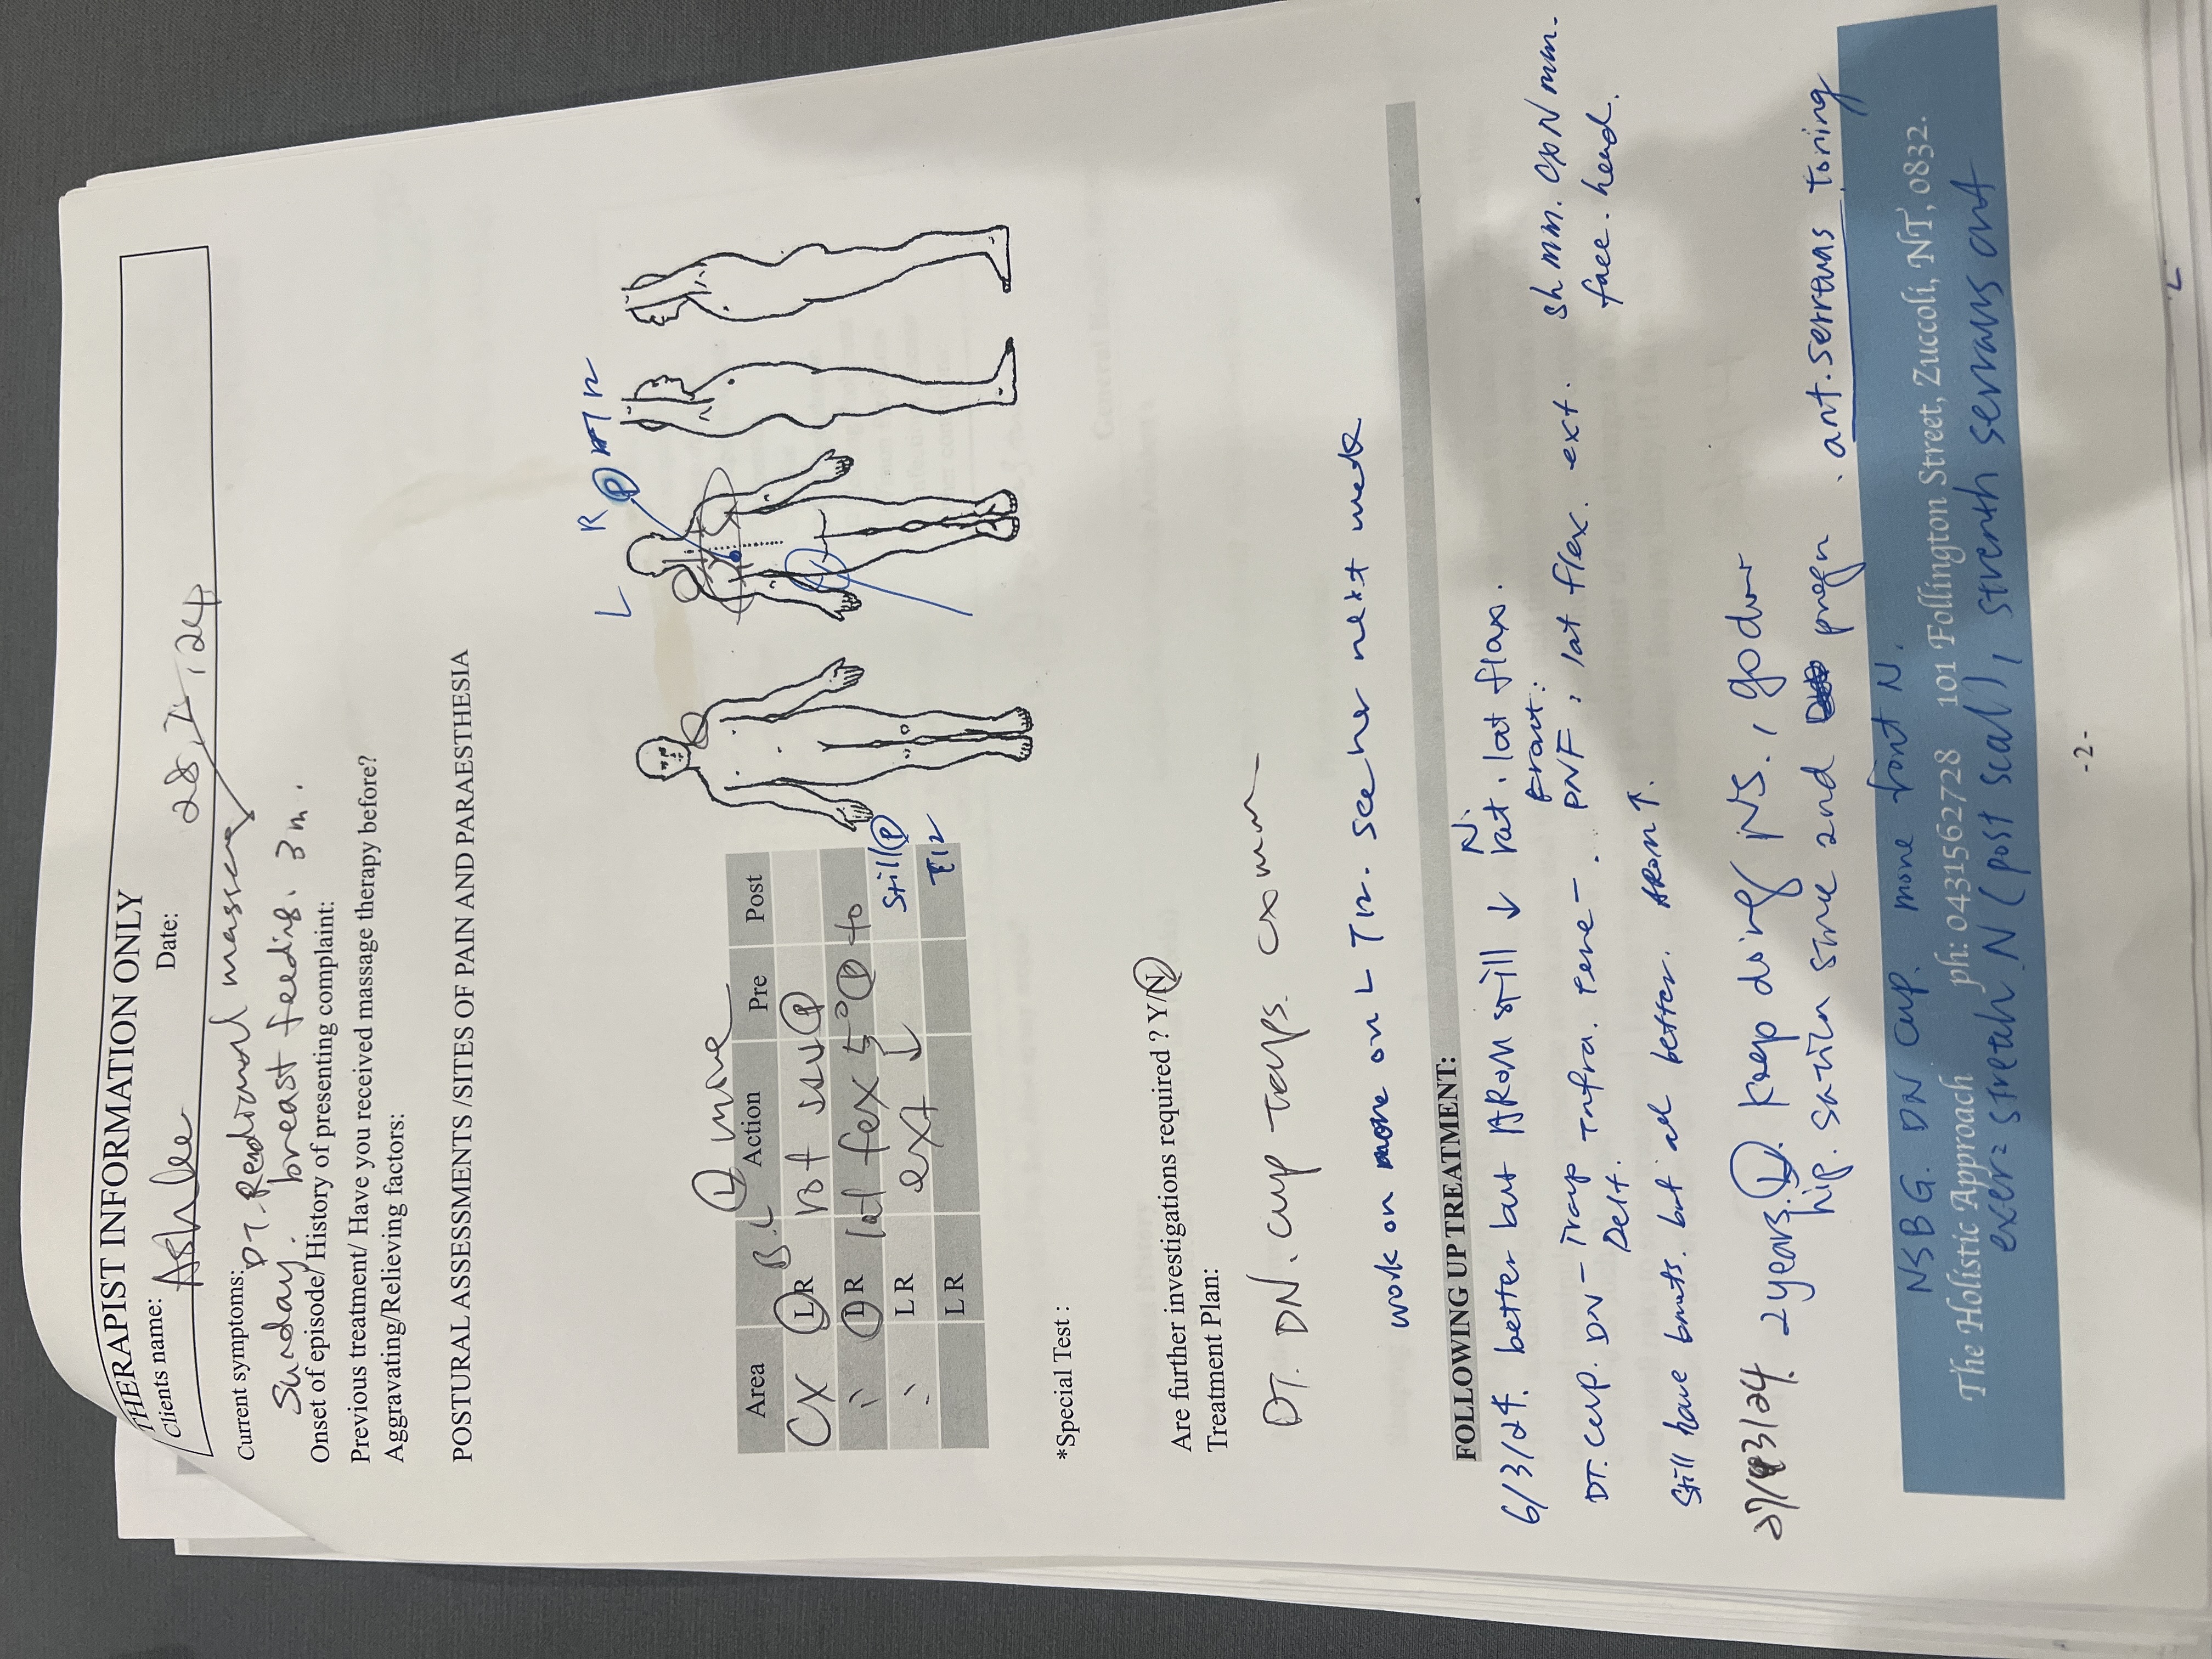 THERAPIST INFORMATION ONLY
Clients name: Ashlee Date: 28, 2, 24
Current symptoms: DT. Remedional massage
Sunday. breast feeding. 3m.
Onset of episode/ History of presenting complaint:
Previous treatment/ Have you received massage therapy before?
Aggravating/Relieving factors:
POSTURAL ASSESSMENTS /SITES OF PAIN AND PARAESTHESIA
L R P T12
B. L more
Area Action Pre Post
CX L R rot ↓↓↓ P
" L R lat fex 5° to
still P
" L R ext ↓
T12
L R
*Special Test :
Are further investigations required ? Y/N
Treatment Plan:
DT. DN. cup Traps. CX mm
work on more on L T12. see her next week
FOLLOWING UP TREATMENT:
6/3/24. better but AROM still ↓ N. rat. lat flax.
DT. cup. DN - Trap Infra. Delt. PNF, lat flex. ext. sh mm.
face. head.
Still have but all better. AROM ↑.
27/3/24. 2 years. L. keep doing NS., go
hip. since 2nd pregn. ant. serrtuas toning
NSBG. DN cup. more front N.
The Holistic Approach ph: 0431562728 101 Follington Street, Zuccoli, NT, 0832.
exer= stretah N (post scal), strenth serraus ant
-2-